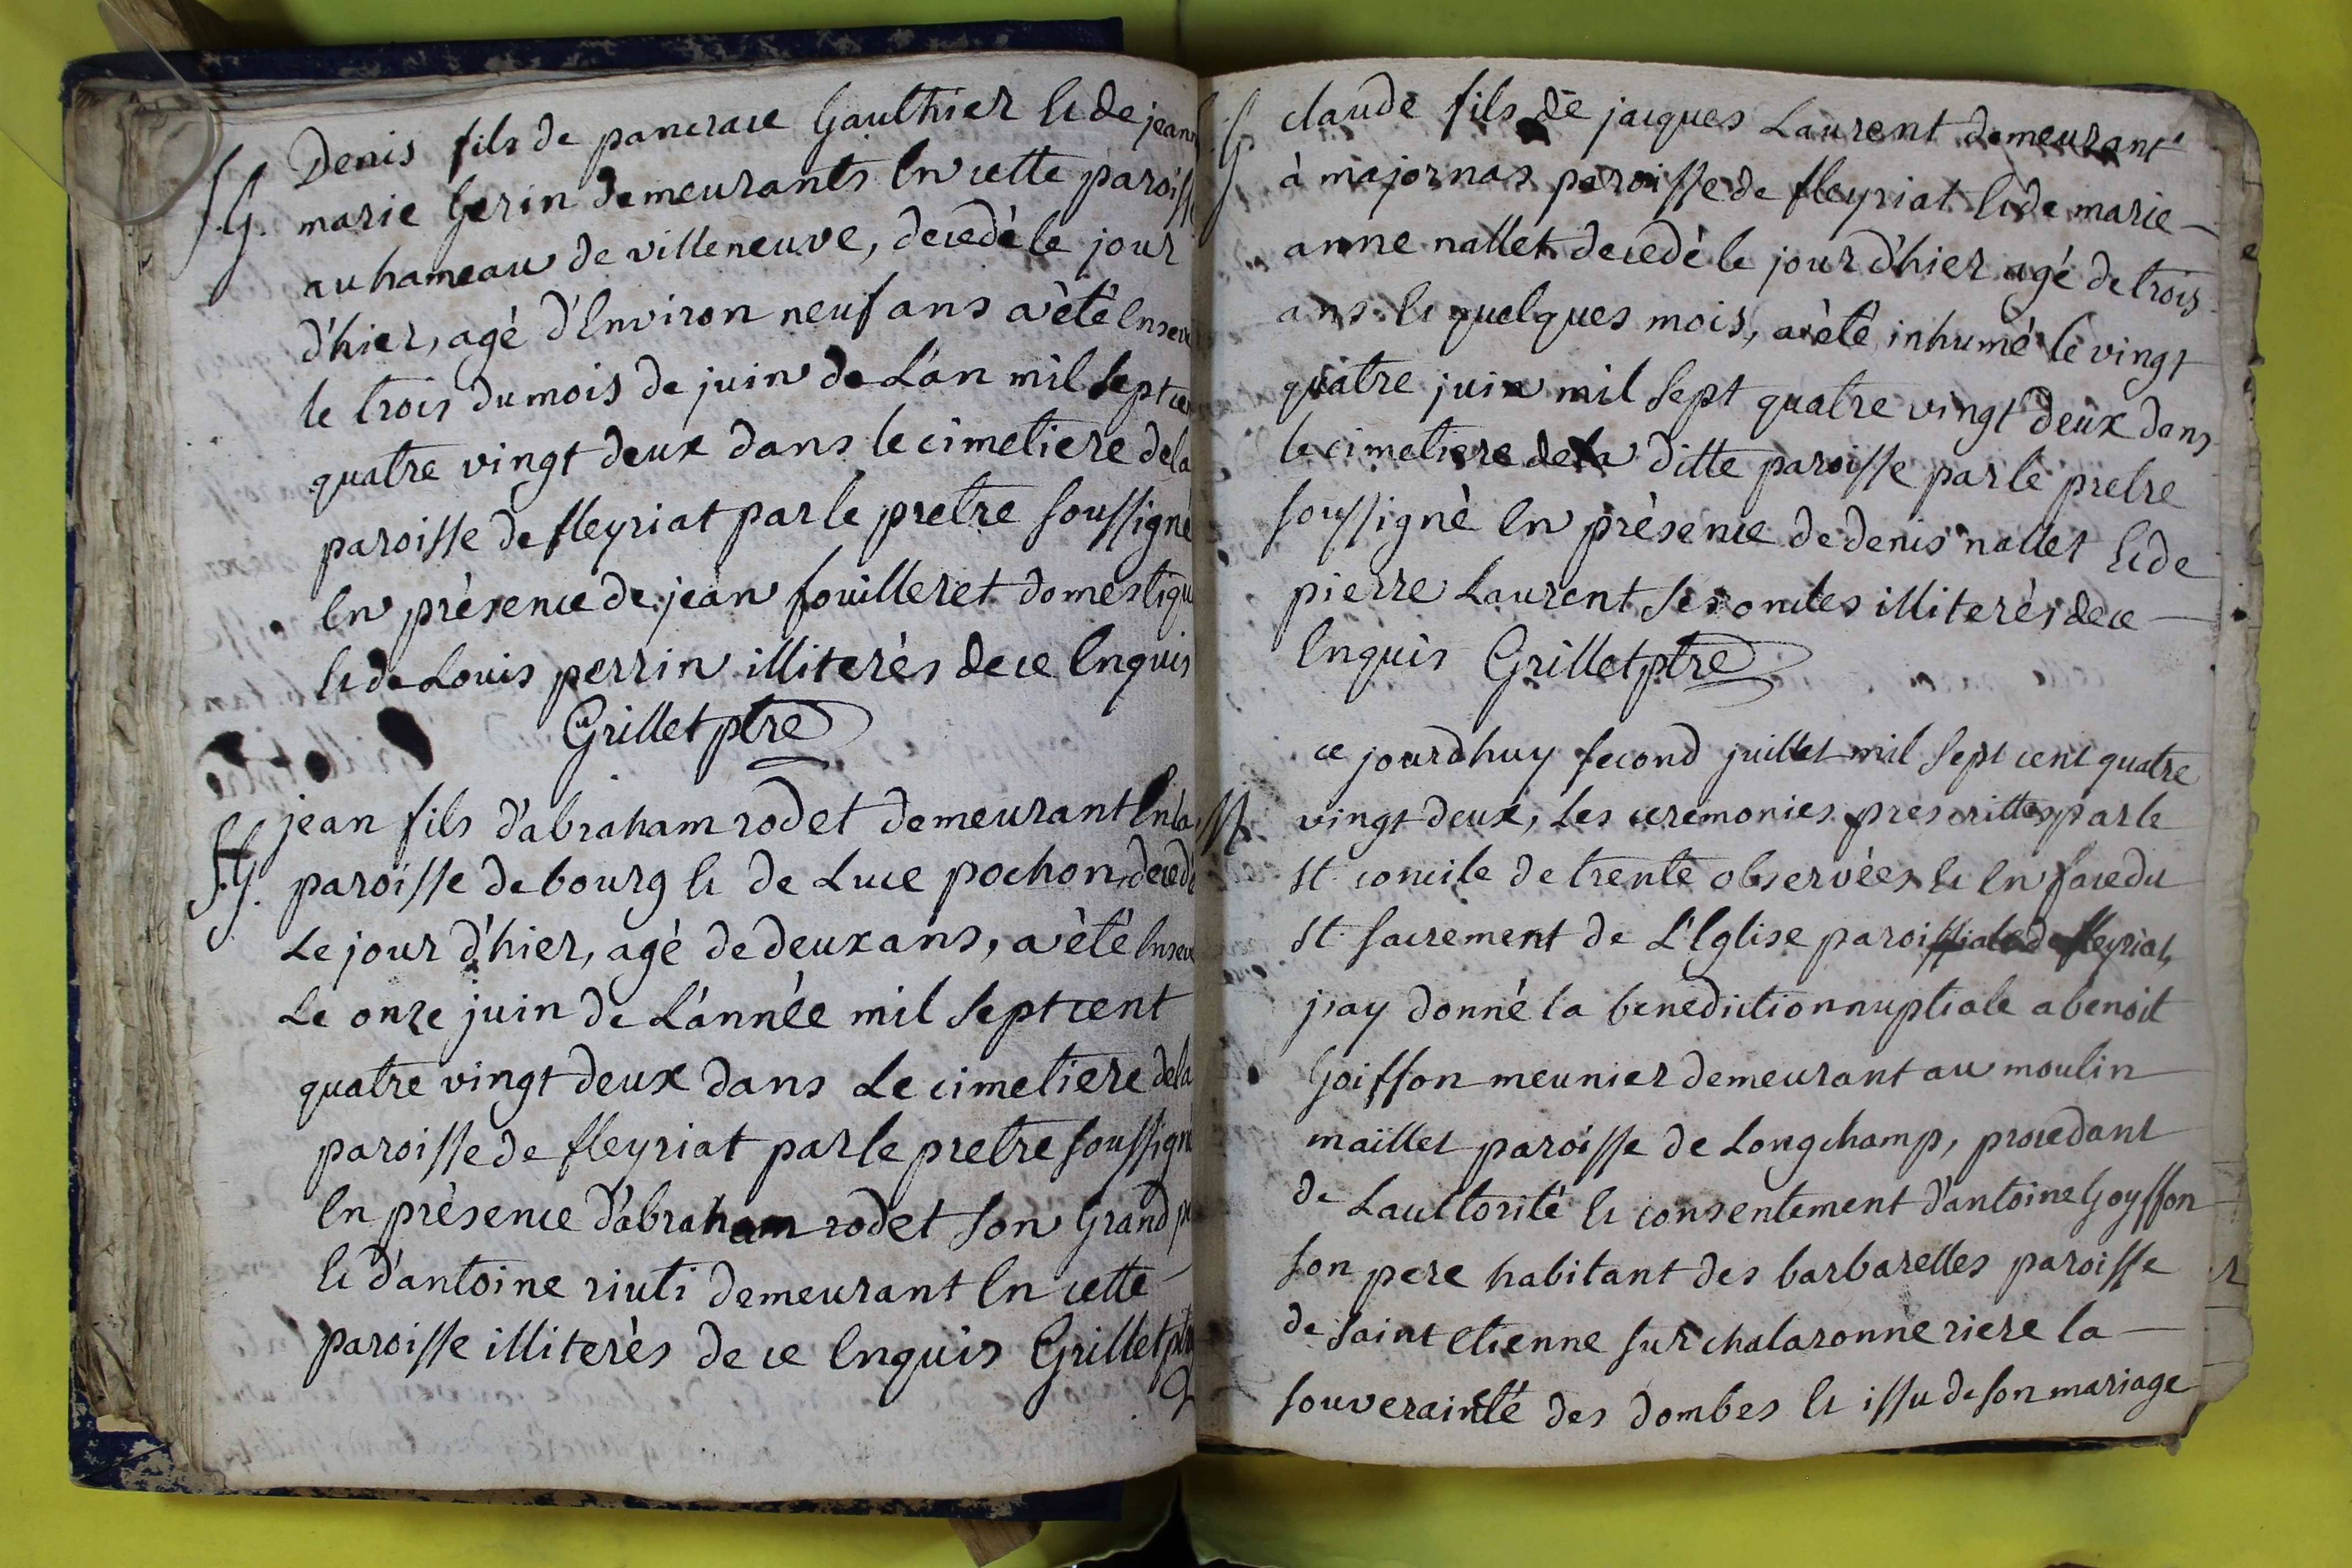 Denis fils de pancrace Gaulthier et de jeanne
S.G. marie Gerin demeurants En cette paroisse
au hameau de villeneuve, decedè le jour
d'hier, agé d'Environ neuf ans a èté Ensev
le trois du mois de juin de L'an mil Sept cen
quatre vingt deux dans le cimetiere de la
paroisse de fleyriat par le pretre Soussigné
En prèsence de jean fouilleret domestiqu
et de Louis perrin illiterès de ce Enquis
Grillet ptre
jean fils d'abraham rodet demeurant En la
S.G. paroisse de bourg et de Luce pochon, decedé
Le jour d'hier, agé de deux ans, a èté Ensev
Le onze juin de L'année mil Sept cent
quatre vingt deux dans Le cimetiere de la
paroisse de fleyriat par le pretre Soussigné
En prèsence d'abraham rodet Son Grand p
et d'antoine riuti demeurant En cette
paroisse illiterès de ce Enquis Grillet ptre
S.G. claude fils de jacques Laurent demeurant
à majornas paroisse de fleyriat et de marie
anne nallet decedè le jour d'hier agé de trois
ans et quelques mois, a èté inhumé le vingt
quatre juin mil Sept quatre vingt deux dans
le cimetiere de la ditte paroisse par le pretre
Soussignè En prèsence de denis nallet et de
pierre Laurent Ses oncles illiterès de ce
Enquis Grillet ptre
ce jourdhuy Second juillet mil Sept cent quatre
vingt deux, Les ceremonies prescrittes par le
St concile de trente observées et En face du
St Sacrement de L'Eglise paroissiale de fleyriat,
j'ay donné la benediction nuptiale a benoit
Goiffon meunier demeurant au moulin
maillet paroisse de Longchamp, procedant
de Lauttorité et consentement d'antoine Goyffon
Son pere habitant des barbarelles paroisse
de Saint etienne Sur chalaronne riere la
Souverainté des dombes et issu de Son mariage